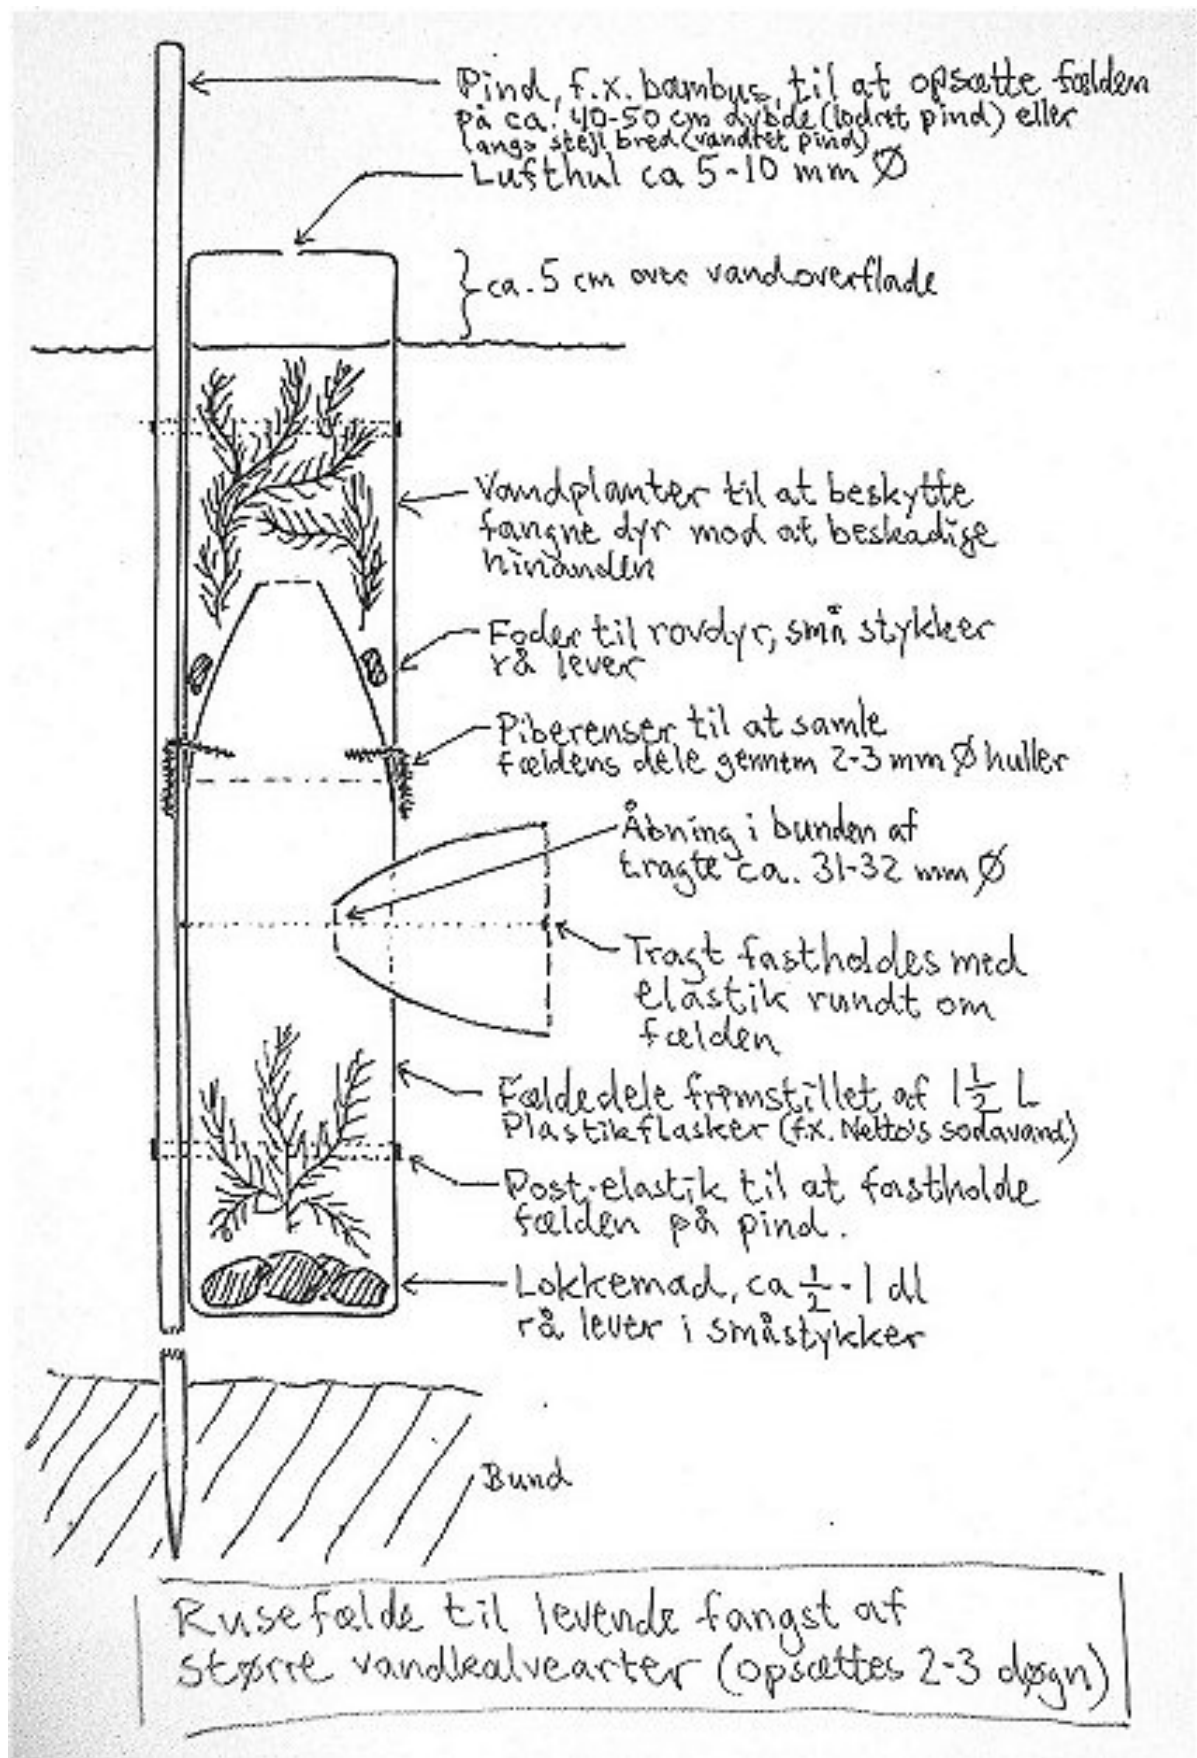 Pind, f.x. bambus, til at opsætte fælden
på ca. 40-50 cm dybde (lodret pind) eller
langs stejl bred (vandret pind)
Lufthul ca 5-10 mm Ø
ca. 5 cm over vandoverflade
Vandplanter til at beskytte
fangne dyr mod at beskadige
hinanden
Foder til rovdyr, små stykker
rå lever
Piberenser til at samle
fældens dele gennem 2-3 mm Ø huller
Åbning i bunden af
tragte ca. 31-32 mm Ø
Tragt fastholdes med
elastik rundt om
fælden
Fældedele fremstillet af 1½ L
Plastikflasker (f.x. Netto's sodavand)
Post-elastik til at fastholde
fælden på pind.
Lokkemad, ca ½-1 dl
rå lever i småstykker
Bund
Rusefælde til levende fangst af
større vandkalvearter (opsættes 2-3 døgn)